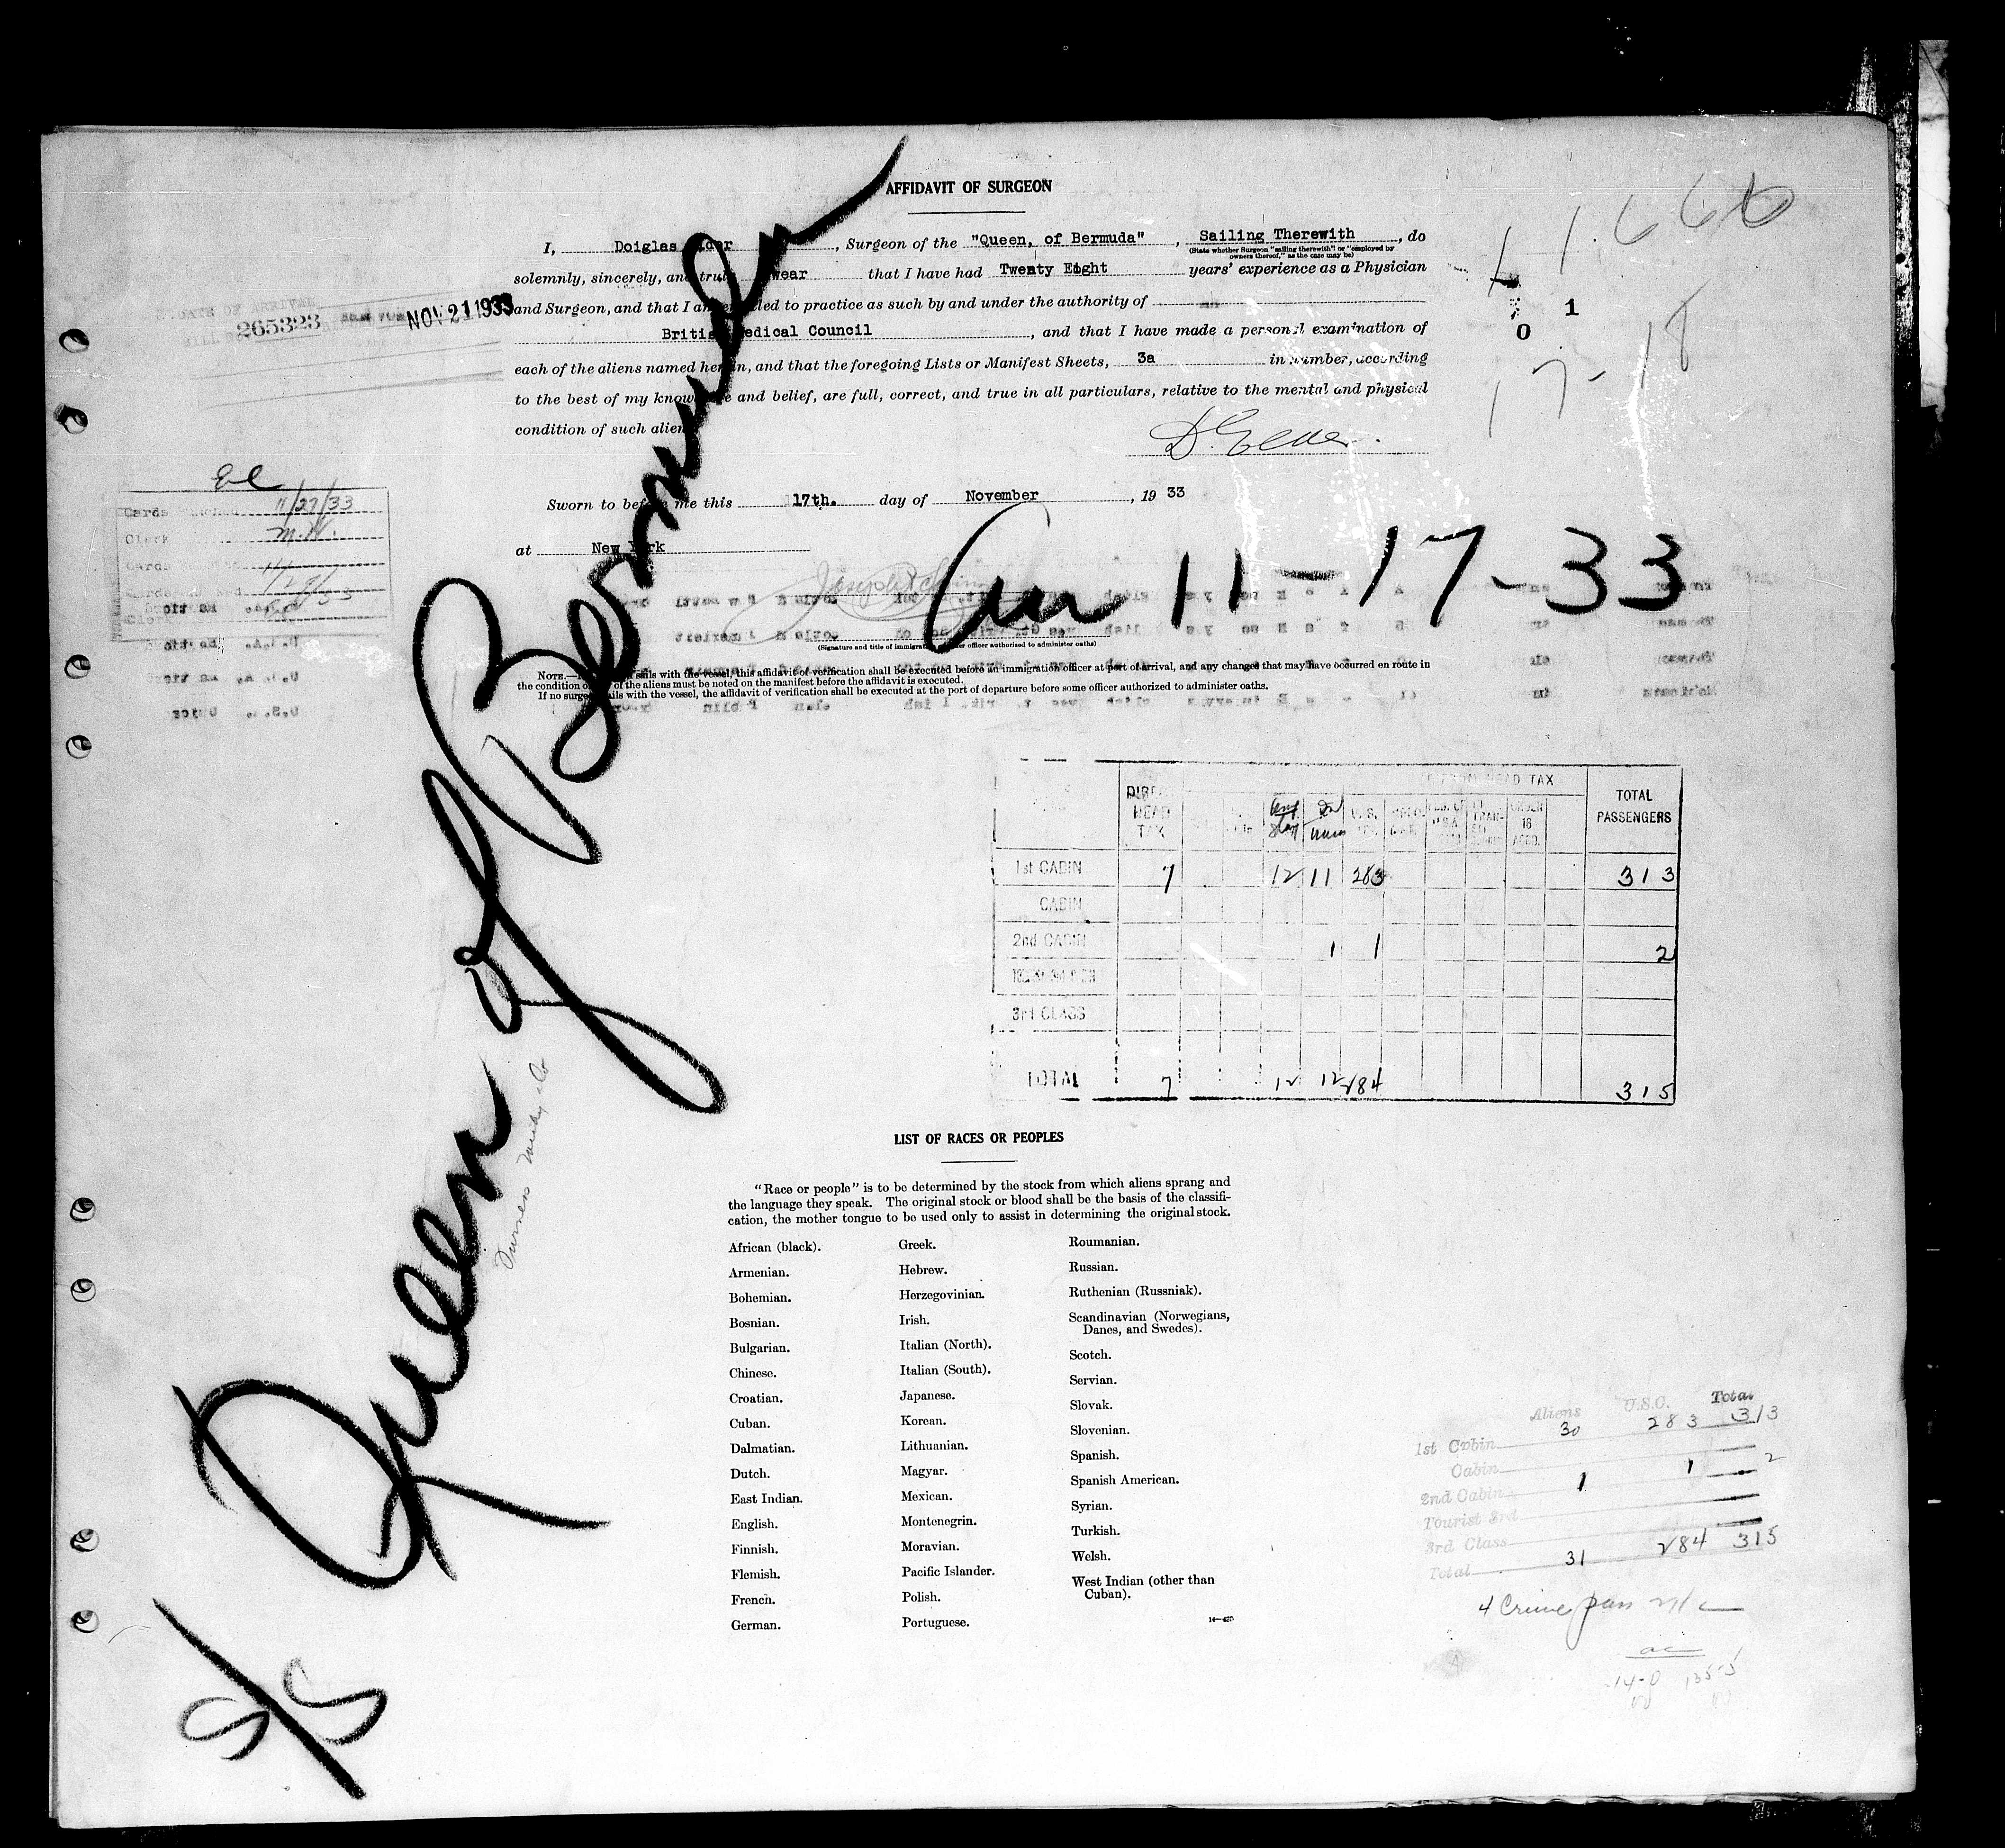 AFFIDAVIT OF SURGEON
I, Doiglas , Surgeon of the "Queen, of Bermuda" , Sailing Therewith , do
(State whether Surgeon "sailing therewith" or "employed by
owners thereof," as the case may be)
solemnly, sincerely, and that I have had Twenty Eight years' experience as a Physician
and Surgeon, and that I am to practice as such by and under the authority of
Medical Council , and that I have made a personal examination of
each of the aliens named herein, and that the foregoing Lists or Manifest Sheets, 3a in number, according
to the best of my knowledge and belief, are full, correct, and true in all particulars, relative to the mental and physical
condition of such aliens
265323 NOV 21 1933
1.666
1
0
17-18
Sworn to before me this 17th. day of November , 19 33
at New York
11/27/33
Cards
Clerk
Arr 11-17-33
(Signature and title of immigration or other officer authorized to administer oaths)
NOTE.— sails with the vessel, this affidavit of verification shall be executed before an immigration officer at port of arrival, and any changes that may have occurred en route in
the condition of the aliens must be noted on the manifest before the affidavit is executed.
If no surgeon sails with the vessel, the affidavit of verification shall be executed at the port of departure before some officer authorized to administer oaths.
S/S Queen of Bermuda
HEAD TAX HEAD TAX TOTAL PASSENGERS
1st CABIN 7 12 11 283 313
CABIN
2nd CABIN 1 1 2
3rd CLASS
TOTAL 7 12 12 284 315
LIST OF RACES OR PEOPLES
"Race or people" is to be determined by the stock from which aliens sprang and
the language they speak. The original stock or blood shall be the basis of the classifi-
cation, the mother tongue to be used only to assist in determining the original stock.
African (black).
Armenian.
Bohemian.
Bosnian.
Bulgarian.
Chinese.
Croatian.
Cuban.
Dalmatian.
Dutch.
East Indian.
English.
Finnish.
Flemish.
French.
German.
Greek.
Hebrew.
Herzegovinian.
Irish.
Italian (North).
Italian (South).
Japanese.
Korean.
Lithuanian.
Magyar.
Mexican.
Montenegrin.
Moravian.
Pacific Islander.
Polish.
Portuguese.
Roumanian.
Russian.
Ruthenian (Russniak).
Scandinavian (Norwegians,
Danes, and Swedes).
Scotch.
Servian.
Slovak.
Slovenian.
Spanish.
Spanish American.
Syrian.
Turkish.
Welsh.
West Indian (other than
Cuban).
Aliens U.S.C. Total
1st Cabin 30 283 313
Cabin
2nd Cabin 1 1 2
Tourist 3rd
3rd Class
Total 31 284 315